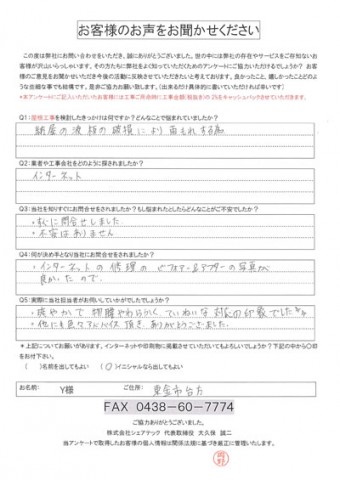 お客様のお声をお聞かせください
この度は弊社にお問い合わせをいただき、誠にありがとうございました。世の中には弊社の存在やサービスをご存知ないお
客様が沢山いらっしゃいます。その方たちに弊社をよく知っていただくためのアンケートにご協力いただけるでしょうか？お客
様のご意見をお聞かせいただき今後の活動に反映させていきたいと考えております。良かったこと、嬉しかったことどのよ
うな些細な事でも結構です。是非ご協力お願い致します。(出来るだけ具体的に書いていただければ幸いです)
Q1:屋根工事を検討したきっかけは何ですか？どんなことで悩まれていましたか？
納屋の波板の破損により雨もれする為
Q2:業者や工事会社をどのように探されましたか？
インターネット
Q3:当社を知りすぐにお問合せをされましたか？もし悩まれたとしたらどんなことがご不安でしたか？
・すぐに問合せしました
・不安はありません
Q4:何が決め手となり当社にお問合せをされましたか？
・インターネットの修理のビフォアー&アフターの写真が
良かったので。
Q5:実際に当社担当者がお伺いしていかがでしたでしょうか？
・爽やかで物腰やわらかく、ていねいな対応の印象でした
・他にも色々アドバイス頂き、ありがとうございました。
＊上記についてお願いがあります。インターネットや印刷物に掲載させていただいてもよろしいでしょうか？下記の中から〇印
をお付け下さい。
(　)名前を出してもよい (〇)イニシャルなら出してもよい
お名前: Y様 ご住所: 東金市台方
FAX 0438-60-7774
ご協力ありがとうございました。
株式会社シェアテック 代表取締役 大久保 誠二
当アンケートで取得したお客様の個人情報は関係法規に基づき厳正に管理いたします。